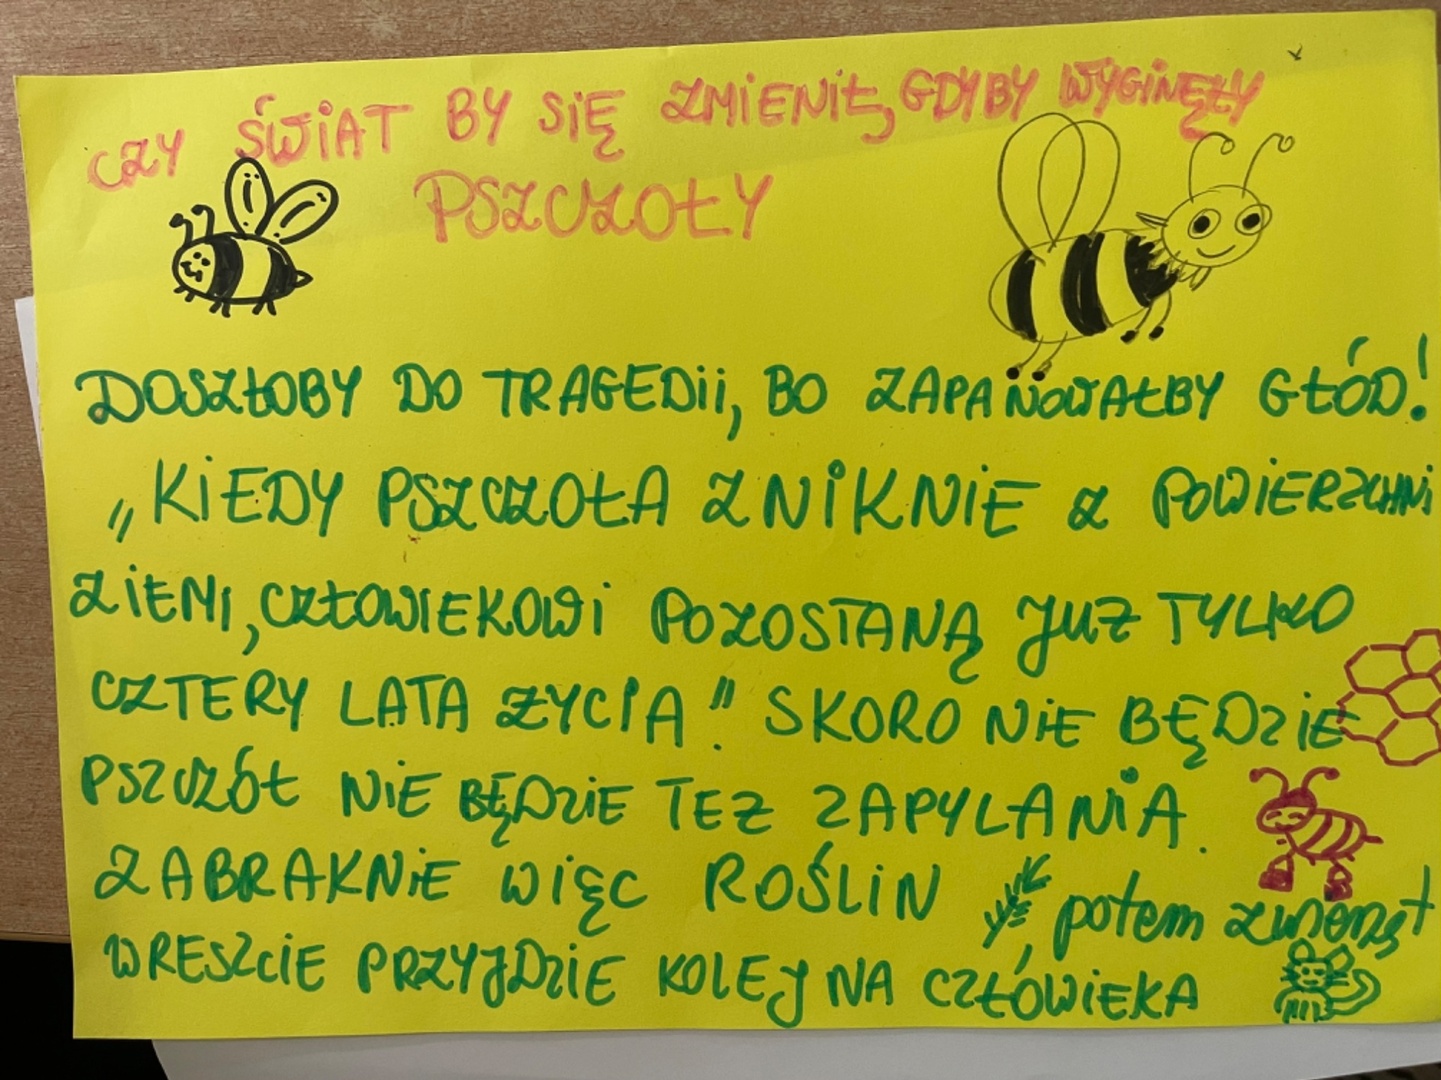 CZY ŚWIAT BY SIĘ ZMIENIŁ, GDYBY WYGINĘŁY
PSZCZOŁY
DOSZŁOBY DO TRAGEDII, BO ZAPANOWAŁBY GŁÓD!
„KIEDY PSZCZOŁA ZNIKNIE Z POWIERZCHNI
ZIEMI, CZŁOWIEKOWI POZOSTANĄ JUŻ TYLKO
CZTERY LATA ŻYCIA." SKORO NIE BĘDZIE
PSZCZÓŁ NIE BĘDZIE TEŻ ZAPYLANIA.
ZABRAKNIE WIĘC ROŚLIN, potem zwierząt
WRESZCIE PRZYJDZIE KOLEJ NA CZŁOWIEKA